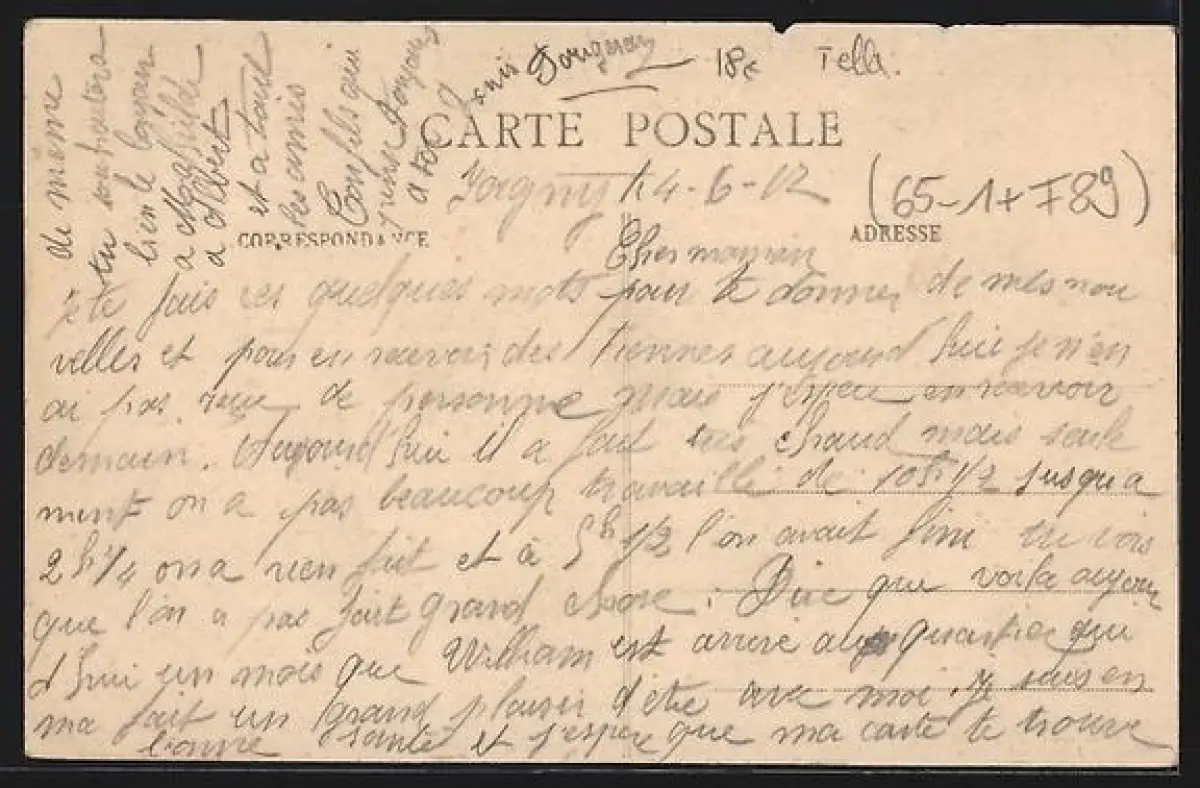 18e Tella.
CARTE POSTALE
14-6-12
(65-1+F89)
CORRESPONDANCE
ADRESSE
Cher maman
je te fais ces quelques mots pour te donner de mes nou
velles et pour en recevoir des tiennes aujourd hui je n'en
ai pas reçu de personne mais j'espere en recevoir
demain. Aujourd hui il a fait tres chaud mais seule
ment on a pas beaucoup travaillé de 10h 1/2 jusqu a
2h 1/4 on a rien fait et à 5h 1/2 l'on avait fini tu vois
que l'on a pas fait grand chose. Dire que voila aujour
d hui un mois que William est arrivé au quartier qui
ma fait un grand plaisir d'etre avec moi. Je suis en
bonne santé et j'espere que ma carte te trouve
de meme
tu souhaitera
bien le bonjour
a Mathilde
a Albert
et a tout
les amis
Ton fils qui
pense toujours
a toi